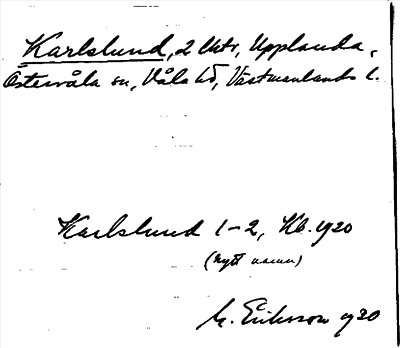 Karlslund, 2 lhtr, Upplanda,
Östervåla sn, Våla hd, Västmanlands l.
Karlslund 1-2, Kb. 1920
(nytt namn)
M. Eriksson 1920